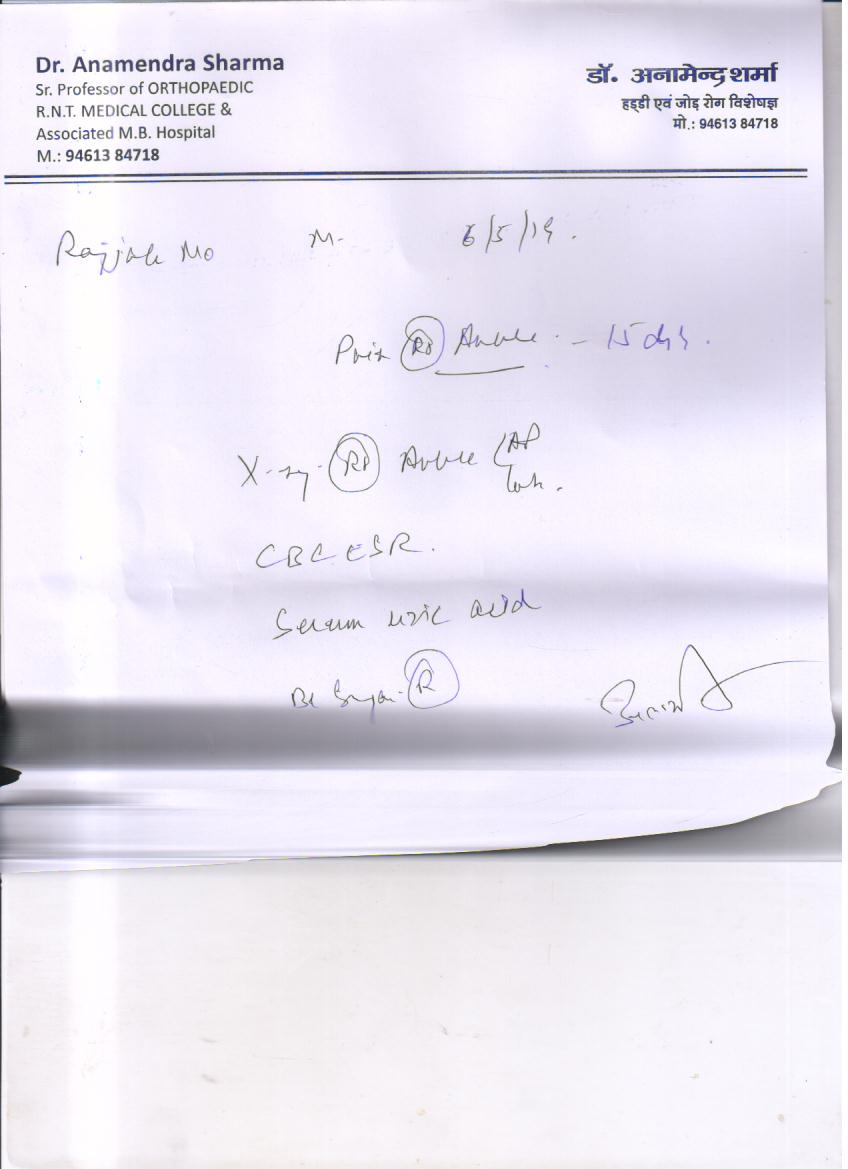 Dr. Anamendra Sharma
Sr. Professor of ORTHOPAEDIC
R.N.T. MEDICAL COLLEGE &
Associated M.B. Hospital
M.: 94613 84718
डॉ. अनामेन्द्र शर्मा
हड्डी एवं जोड़ रोग विशेषज्ञ
मो.: 94613 84718
M. 6/5/19.
Pain Rt Ankle - 15 days.
X-ray Rt Ankle AP
CBC ESR.
Serum uric acid
Bl Sugar R